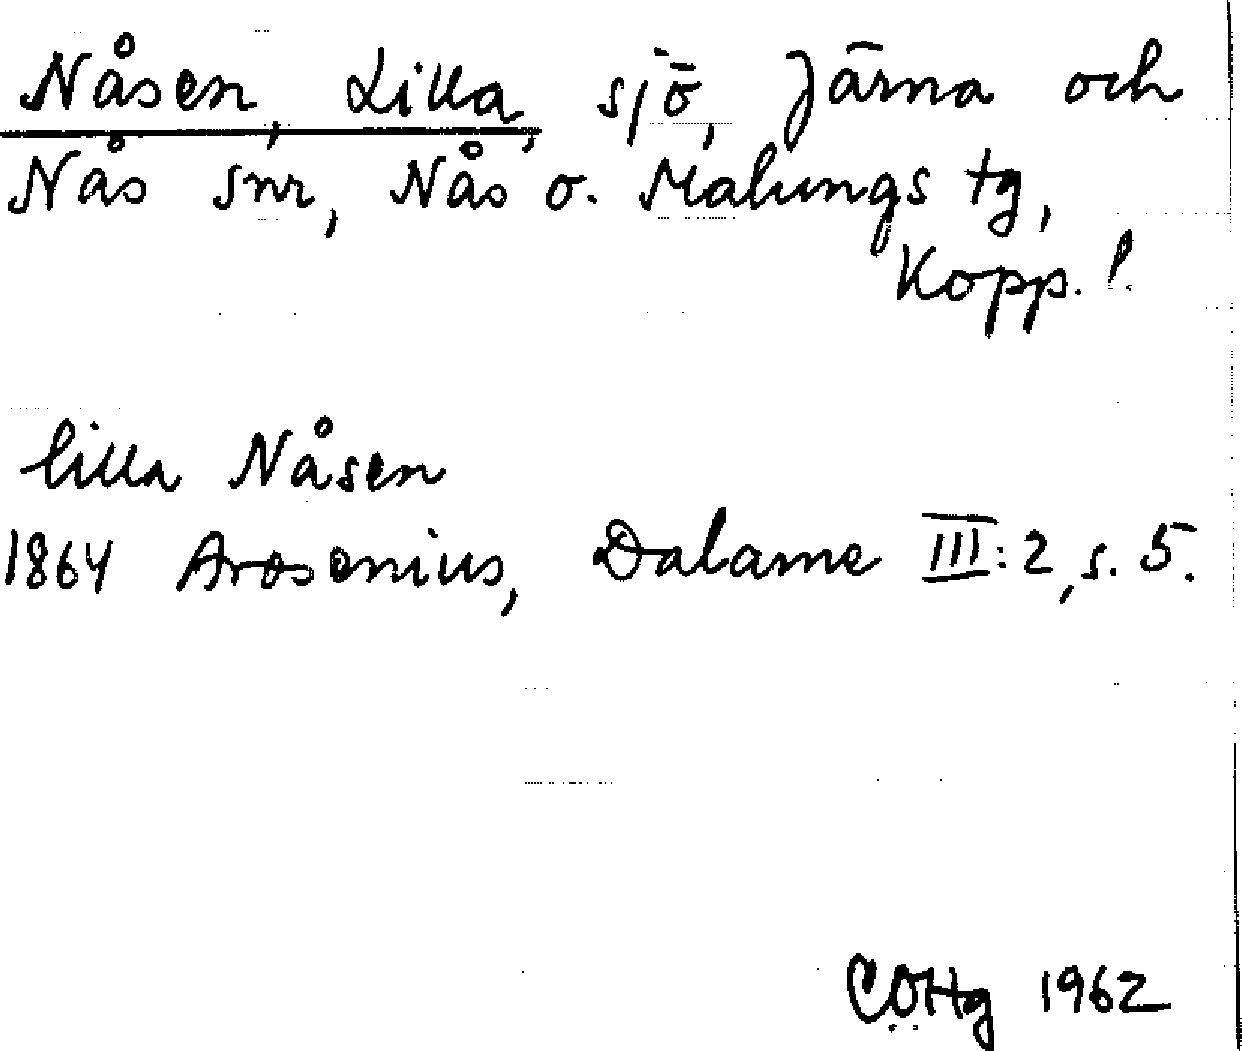 Nåsen, Lilla, sjö, Järna och
Nås snr, Nås o. Malungs tg,
Kopp. l.
lilla Nåsen
1864 Arosenius, Dalarne III:2, s. 5.
COHg 1962